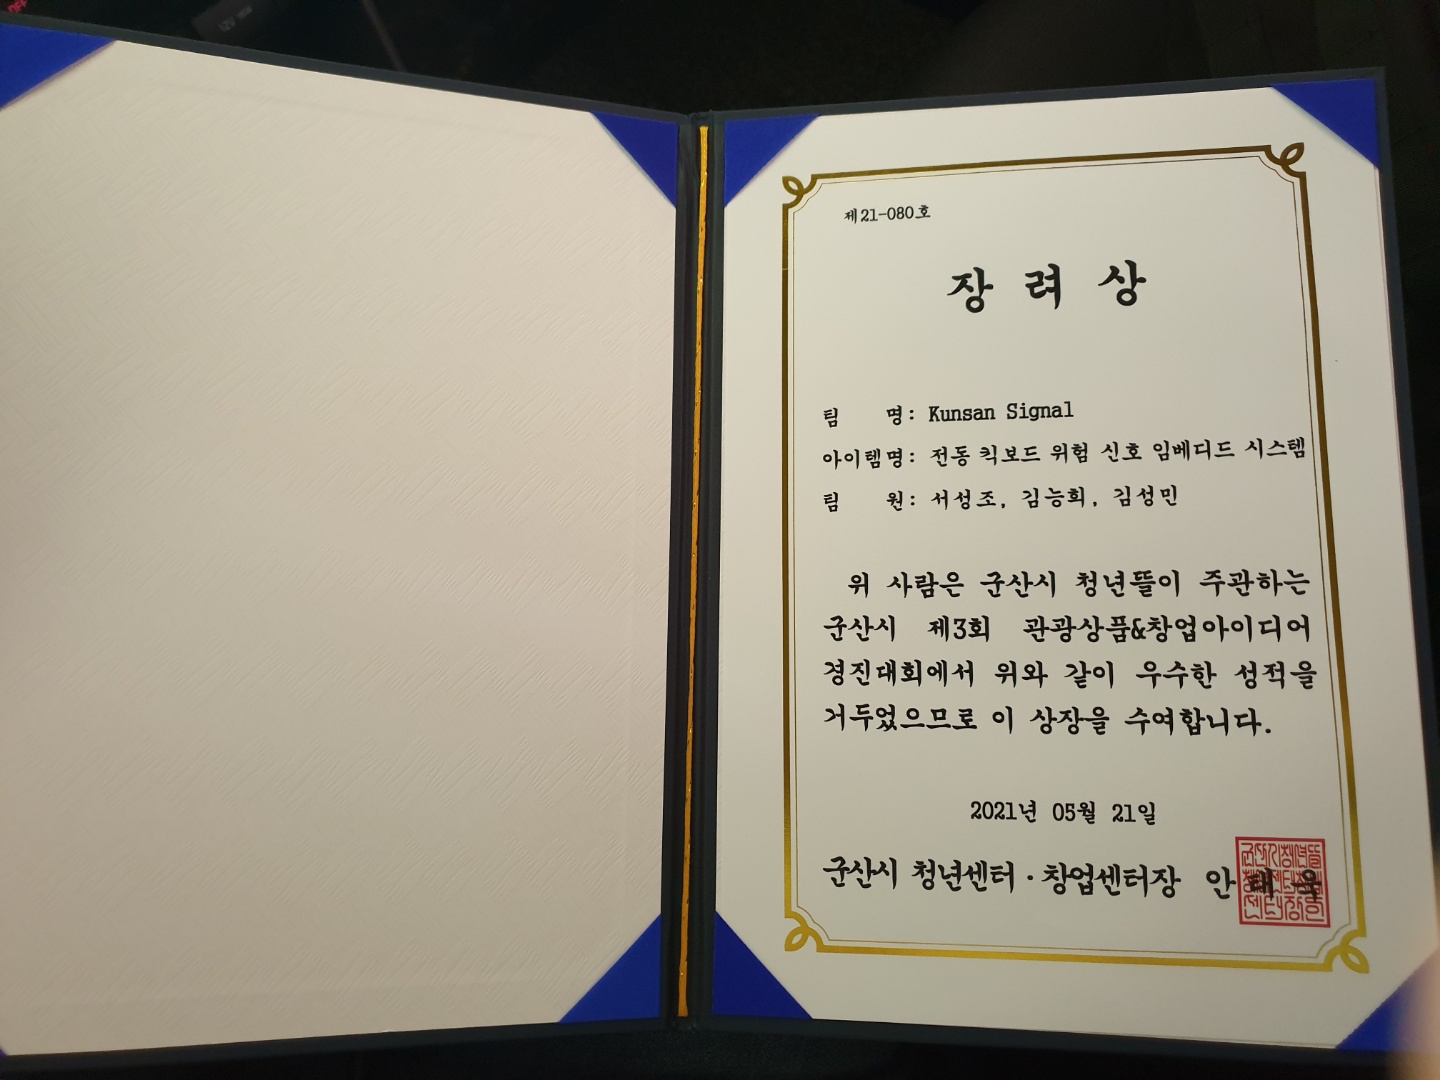 제21-080호
장 려 상
팀 명: Kunsan Signal
아이템명: 전동 킥보드 위험 신호 임베디드 시스템
팀 원: 서성조, 김능회, 김성민
위 사람은 군산시 청년뜰이 주관하는
군산시 제3회 관광상품&창업아이디어
경진대회에서 위와 같이 우수한 성적을
거두었으므로 이 상장을 수여합니다.
2021년 05월 21일
군산시 청년센터·창업센터장 안태욱